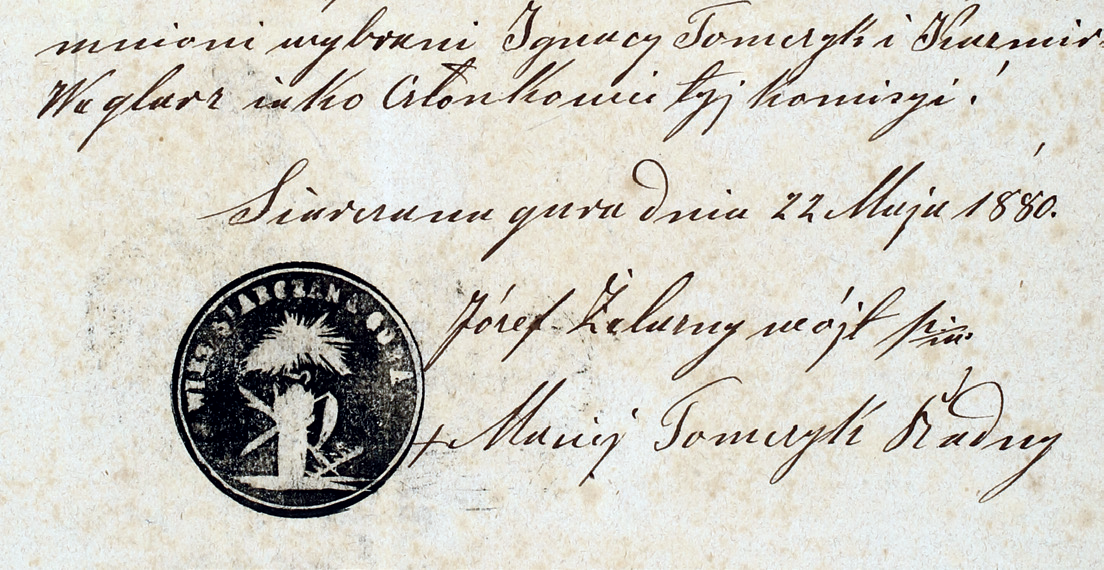 mnioni wybrani Ignacy Tomczyk i Kazmir-
Węglarz iako Członkowie tyj komisyi.
Siarczana gura dnia 22 Maja 1880.
WIEŚ SIARCZANA GÓRA
Józef Żelazny wójt
+ Maciej Tomczyk Radny